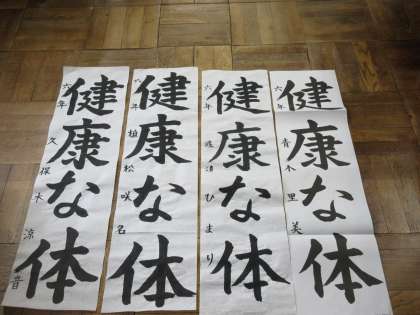 健康な体
六年 久保木涼音
健康な体
六年 植松咲名
健康な体
六年 ひまり
健康な体
六年 青木里美